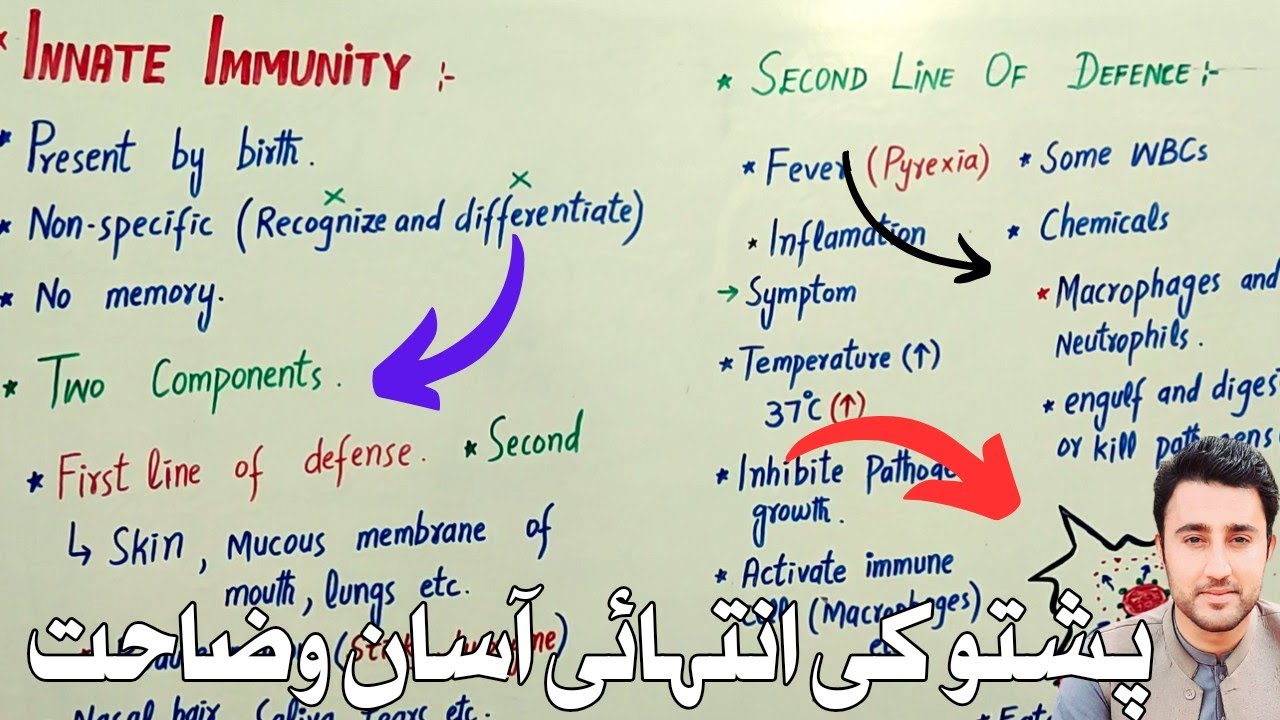 * INNATE IMMUNITY :-
* Present by birth.
* Non-specific (Recognize and differentiate)
* No memory.
* Two Components.
* First line of defense. * Second
↳ Skin, Mucous membrane of
mouth, lungs etc.
Nasal hair, Saliva, Tears etc.
* SECOND LINE OF DEFENCE :-
* Fever (Pyrexia)
* Inflamation
→ Symptom
* Temperature (↑)
37°C (↑)
* Inhibite
growth.
* Activate immune
(Macrophages)
* Some WBCs
* Chemicals
* Macrophages and
Neutrophils.
* engulf and diges
or kill
پشتو کی انتہائی آسان وضاحت